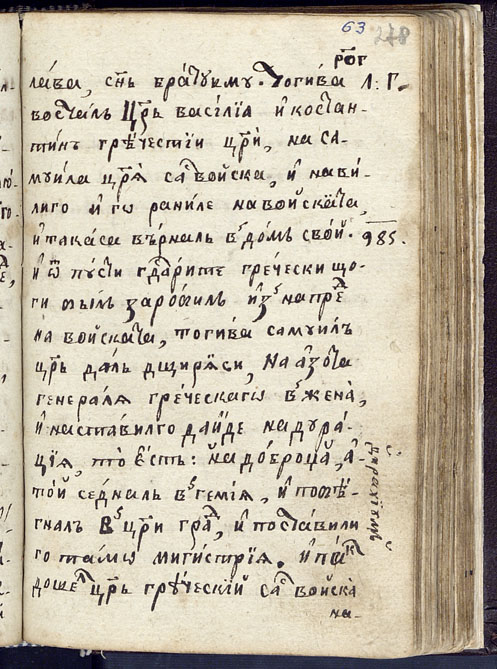 63 278
лава, сн҃ь братꙋему. Тогива Л: Г.
востаⷧ҇ъ Цр҃ь василїа и костан-
тинъ грѣческїи цр҃и, на са-
муила цр҃ѧ саⷭ҇ войска, и нави-
лиго и го раниле на войскаⷮа
и така са върналъ въ домъ свои. 985.
и ѿ пусти гдⷭ҇арите гречески що-
ги был заробилъ изъ напреⷣ
на войскаⷮа, тогива самуилъ
цр҃ь далъ дщирѧ си, На азота
генералѧ греческаго въ жена,
и наставилго дайде на дура-
цїѧ, то естъ: на доброца, а-
той седналъ въ гемїѧ, и побѣ-
гналъ въ цр҃и граⷣ, и поставили
го тамо мигистрїѧ. и паⷦ҇
доше цр҃ь грѣческїй саⷭ҇ войска
на-